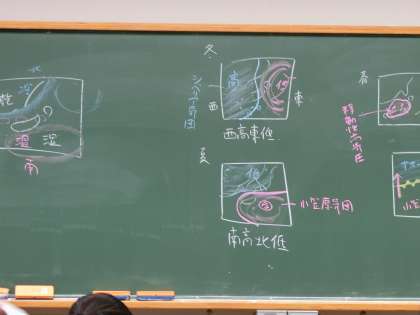 北
乾
冷
温
湿
南
冬
シベリア気団
西
高
低
東
西高東低
夏
低
高
小笠原気団
南高北低
春
移動性高気圧
小笠